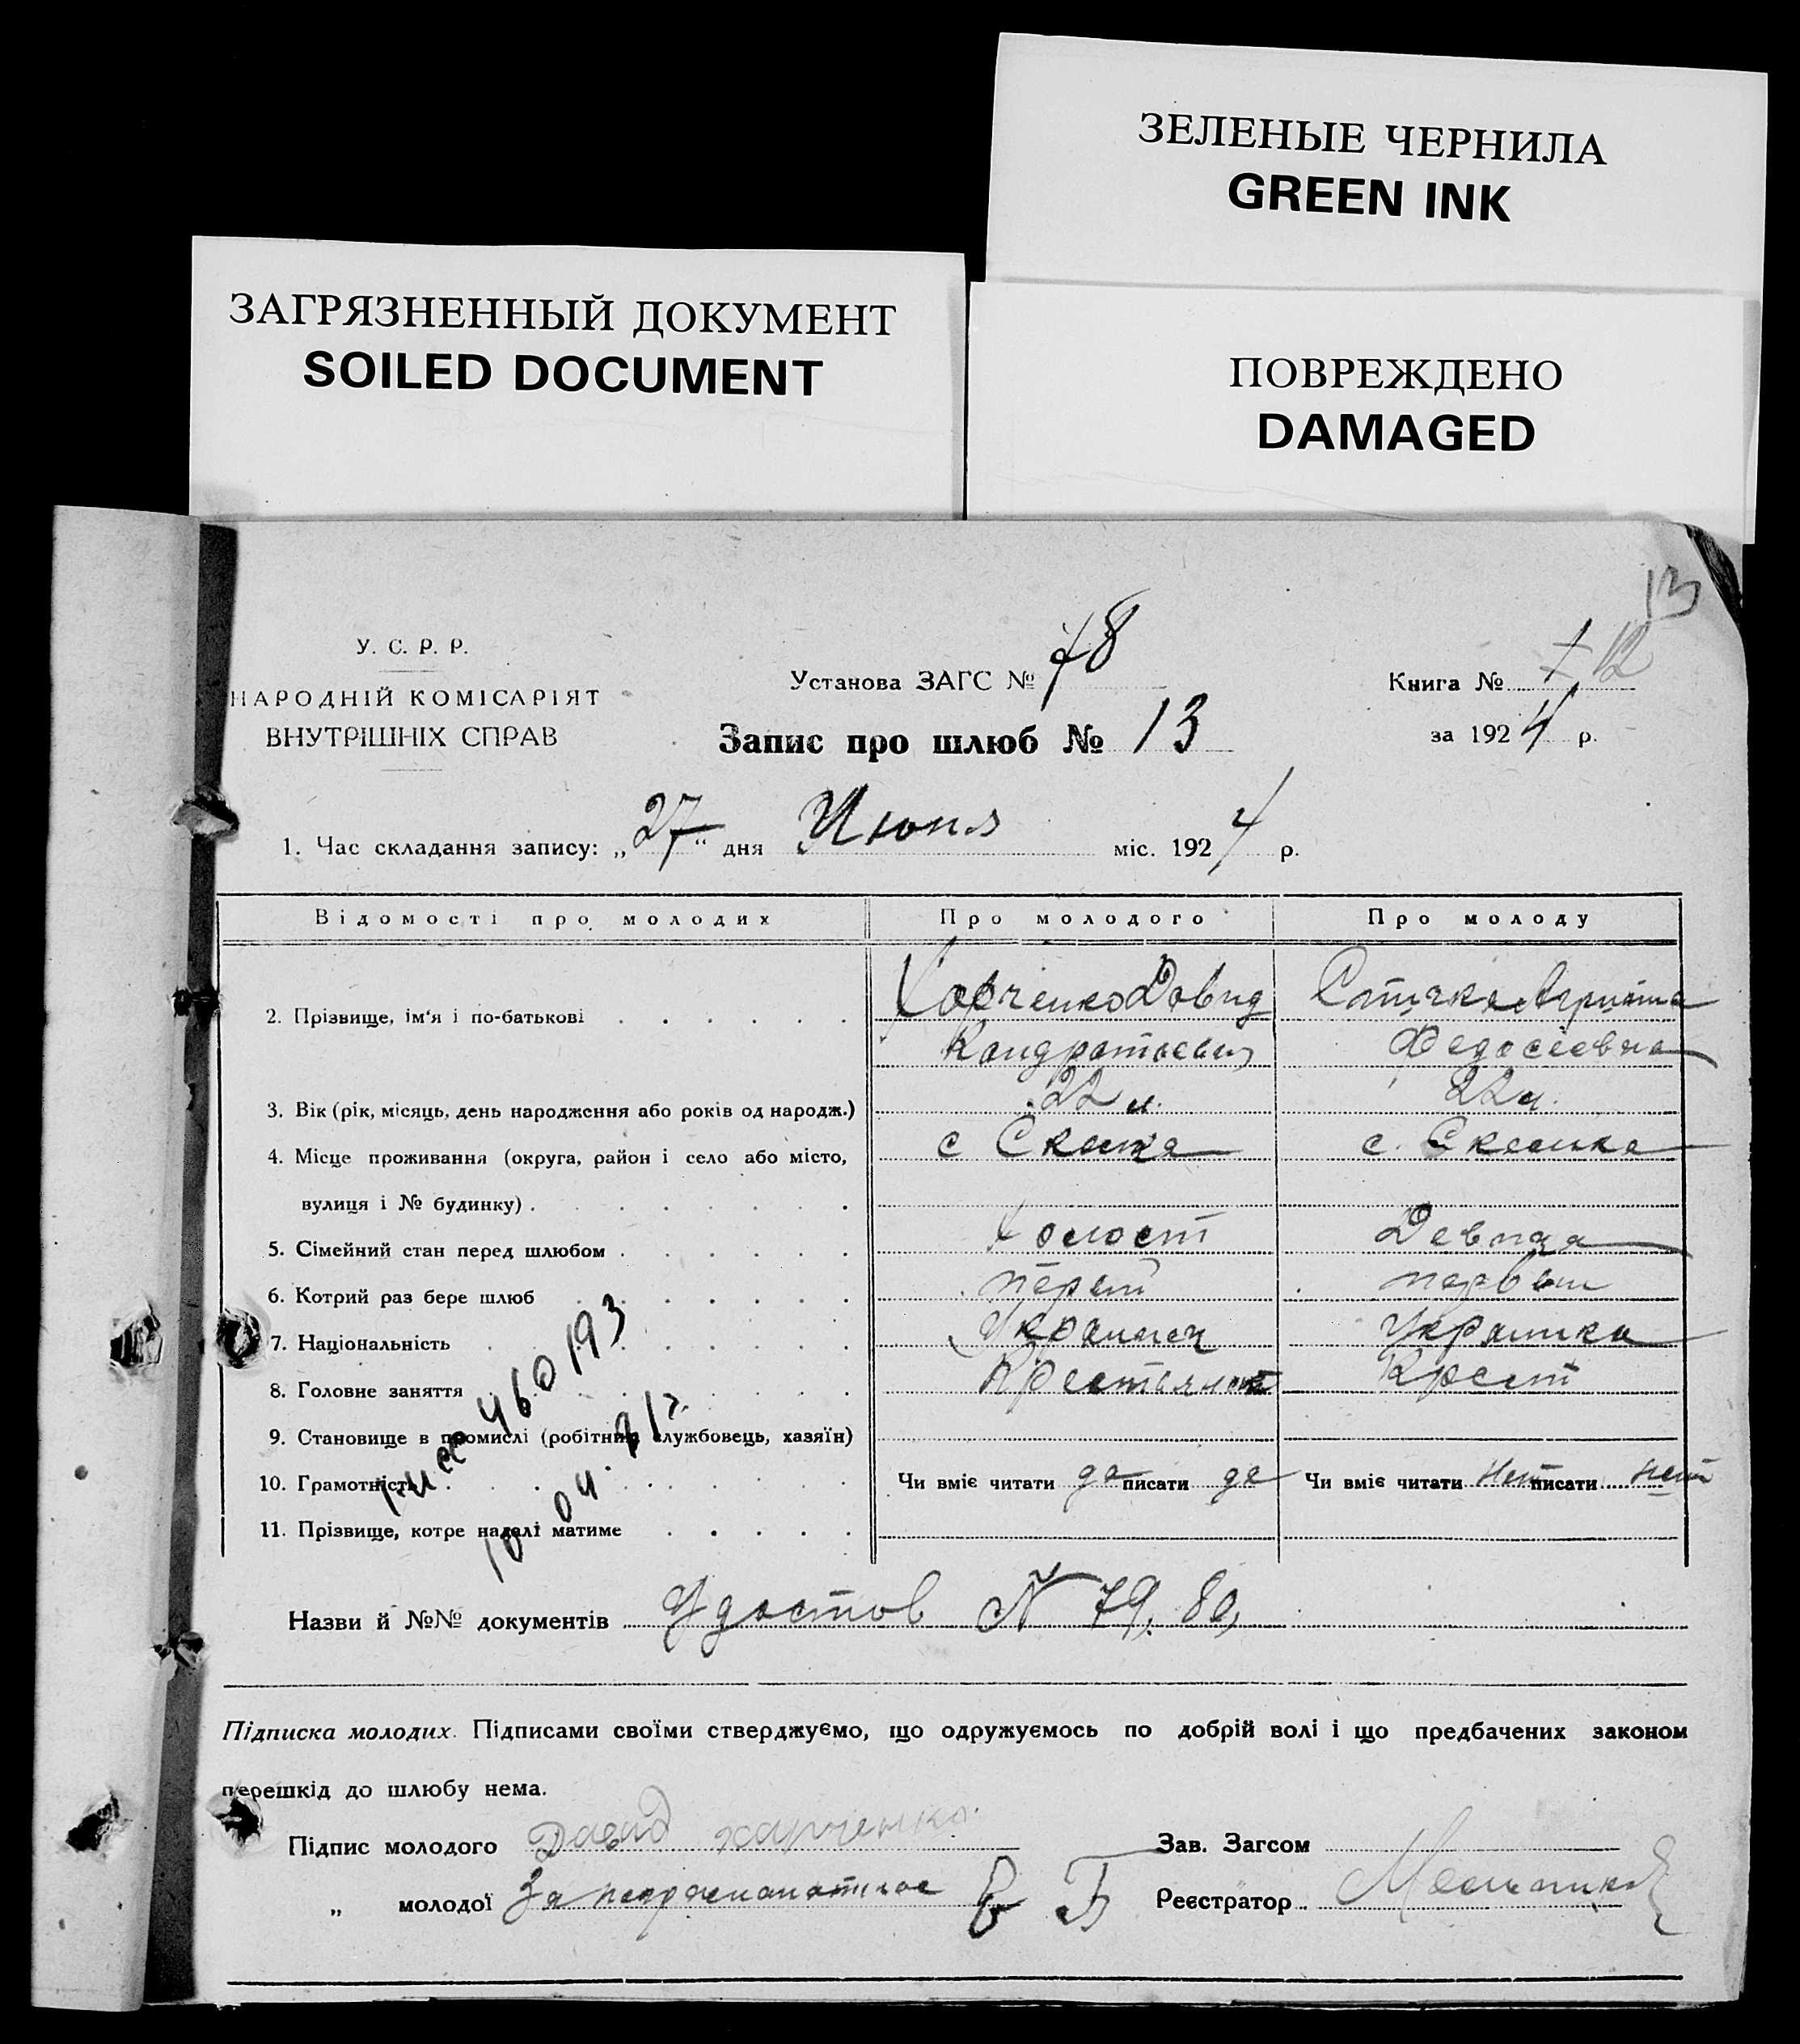 ЗЕЛЕНЫЕ ЧЕРНИЛА
GREEN INK
ЗАГРЯЗНЕННЫЙ ДОКУМЕНТ
SOILED DOCUMENT
ПОВРЕЖДЕНО
DAMAGED
13
У. С. Р. Р.
НАРОДНІЙ КОМІСАРІЯТ
ВНУТРІШНІХ СПРАВ
Установа ЗАГС № 78
Книга № 12
Запис про шлюб № 13
за 1924 р.
1. Час складання запису: „27“ дня Июня міс. 1924 р.
Відомості про молодих Про молодого Про молоду
2. Прізвище, ім'я і по-батькові Харченко Довид
Кондратьевич Федосеевна
3. Вік (рік, місяць, день народження або років од народж.) 22 л. 22 л.
4. Місце проживання (округа, район і село або місто, с с.
вулиця і № будинку)
5. Сімейний стан перед шлюбом Холост Девица
6. Котрий раз бере шлюб первый
7. Національність Украинец Украинка
8. Головне заняття Крест
9. Становище в промислі (робітник службовець, хазяїн)
10. Грамотність Чи вміє читати да писати да Чи вміє читати нет писати нет
11. Прізвище, котре надалі матиме
460193
10 04
Назви й №№ документів Удостов N 79, 80,
Підписка молодих. Підписами своїми стверджуємо, що одружуємось по добрій волі і що предбачених законом
перешкід до шлюбу нема.
Підпис молодого Давид Харченко. Зав. Загсом
„ молодої За неграмотную Реєстратор